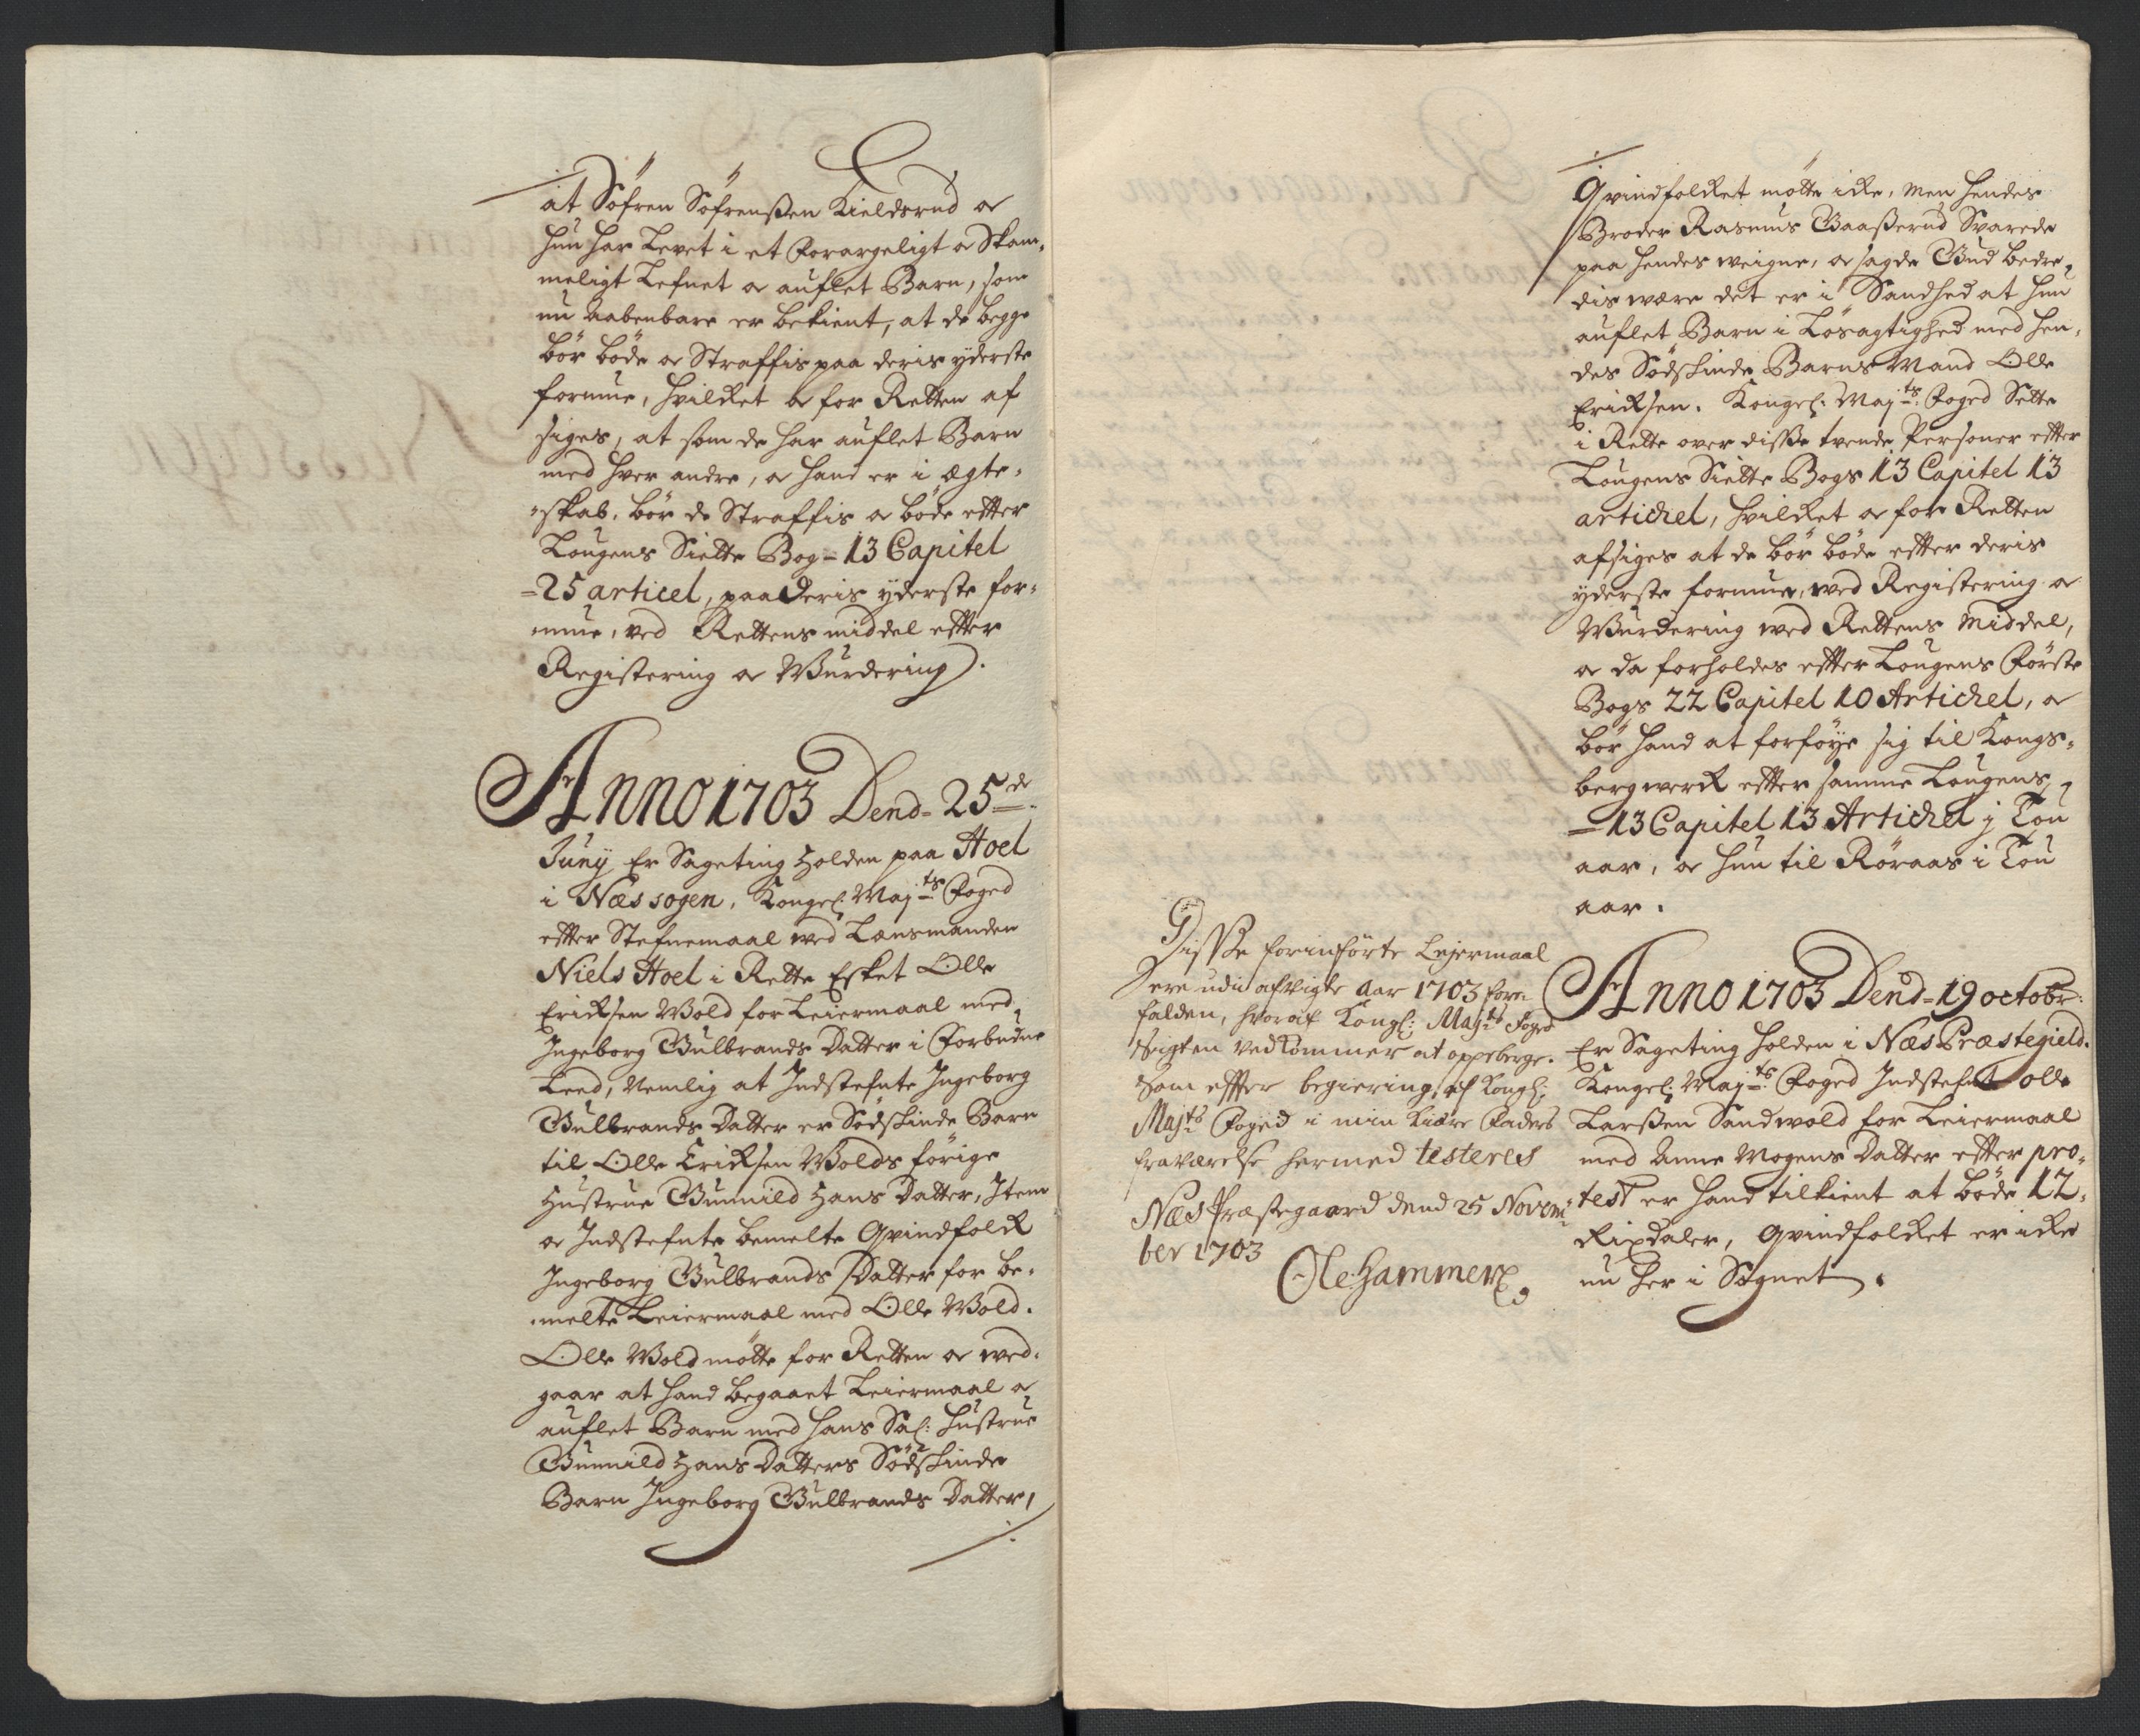 at Söfren Söfrenßen Kieldsrud oc
hun har Levet i et Forargeligt oc Skam-
meligt Lefnet oc auflet Barn, som
nu Aabenbare er bekient, at de begge
bör böde oc Straffis paa deris yderste
formue, hvilket oc for Retten af
siges, at som de har auflet Barn
med hver andre, oc hand er i ægte-
skab, bör de Straffis oc böde efter
Lougens Siette Bog - 13 Capitel
- 25 articel, paa Deris yderste for-
mue, ved Rettens middel efter
Registering oc Wurdering.
Anno 1703 Dend - 25 de
Junij Er Sageting Holden paa Hoel
i Næs sogen, Kongel: Maj:ts Foged
efter Stefnemaal ved Lænsmanden
Niels Hoel i Rette Esket Olle
Ericksen Wold for Leiermaal med
Ingeborg Gulbrands Datter i Forbudne
Leed, Nemlig at Indstefnte Ingeborg
Gulbrands Datter er Södskinde Barn
til Olle Ericksen Wolds förige
Hustrue Gunnild Hans Datter, Item
oc Indstefnte bemelte Qvindfolck
Ingeborg Gulbrands Datter for be-
melte Leiermaal med Olle Wold.
Olle Wold mötte for Retten oc ved-
gaar at hand begaaet Leiermaal oc
auflet Barn med hans Sal: Hustrue
Gunnild Hans Datters Södskinde
Barn Ingeborg Gulbrands Datter,
Qvindfolcket mötte icke, men hendes
Broder Rasmus Baaßerud Svarede
paa hendes weigne, oc sagde Gud bedre
dis wære det er i Sandhed at hun
auflet Barn i Lösagtighed med hen-
des Södskinde Barns Mand Olle
Ericksen. Kongel: Maj:ts Foged Sette
i Rette over diße tvende Personer efter
Lougens Siette Bogs 13 Capitel 13
artickel, hvilcket oc for Retten
afsiges at de bör böde efter deris
yderste formue, ved Registering oc
Wurdering ved Rettens Middel,
oc da forholdes efter Lougens Förste
Bogs 22 Capitel 10 Artickel, oc
bör hand at forföye sig til Kongs-
bergwerck efter samme Lougens
- 13 Capitel 13 Artickel j Tou
aar, oc hun til Röraas i Tou
aar.
Anno 1703 Dend - 19 octobr:
Er Sageting holden i Næs Præstegield.
Kongel: Maj:ts Foged Indstefnt olle
Larßen Sandwold for Leiermaal
med Anne Mogens Datter efter pro-
test er hand tilkient at böde 12
Rixdaler, Qvindfolcket er icke
nu her i Sognet.
Disße forinförte Lejermaal
ere udi afvigte Aar 1703 fore
falden, hvoraf Kongl: Maj:ts Foged
Sigten vedkommer at oppeberge.
Som effter begiering af Kongl:
Maj:ts Foged i min Kiære Faders
fraværelse hermed testeres
Næs Præstegaard dend 25 Novem-
ber 1703
Ole Hammer